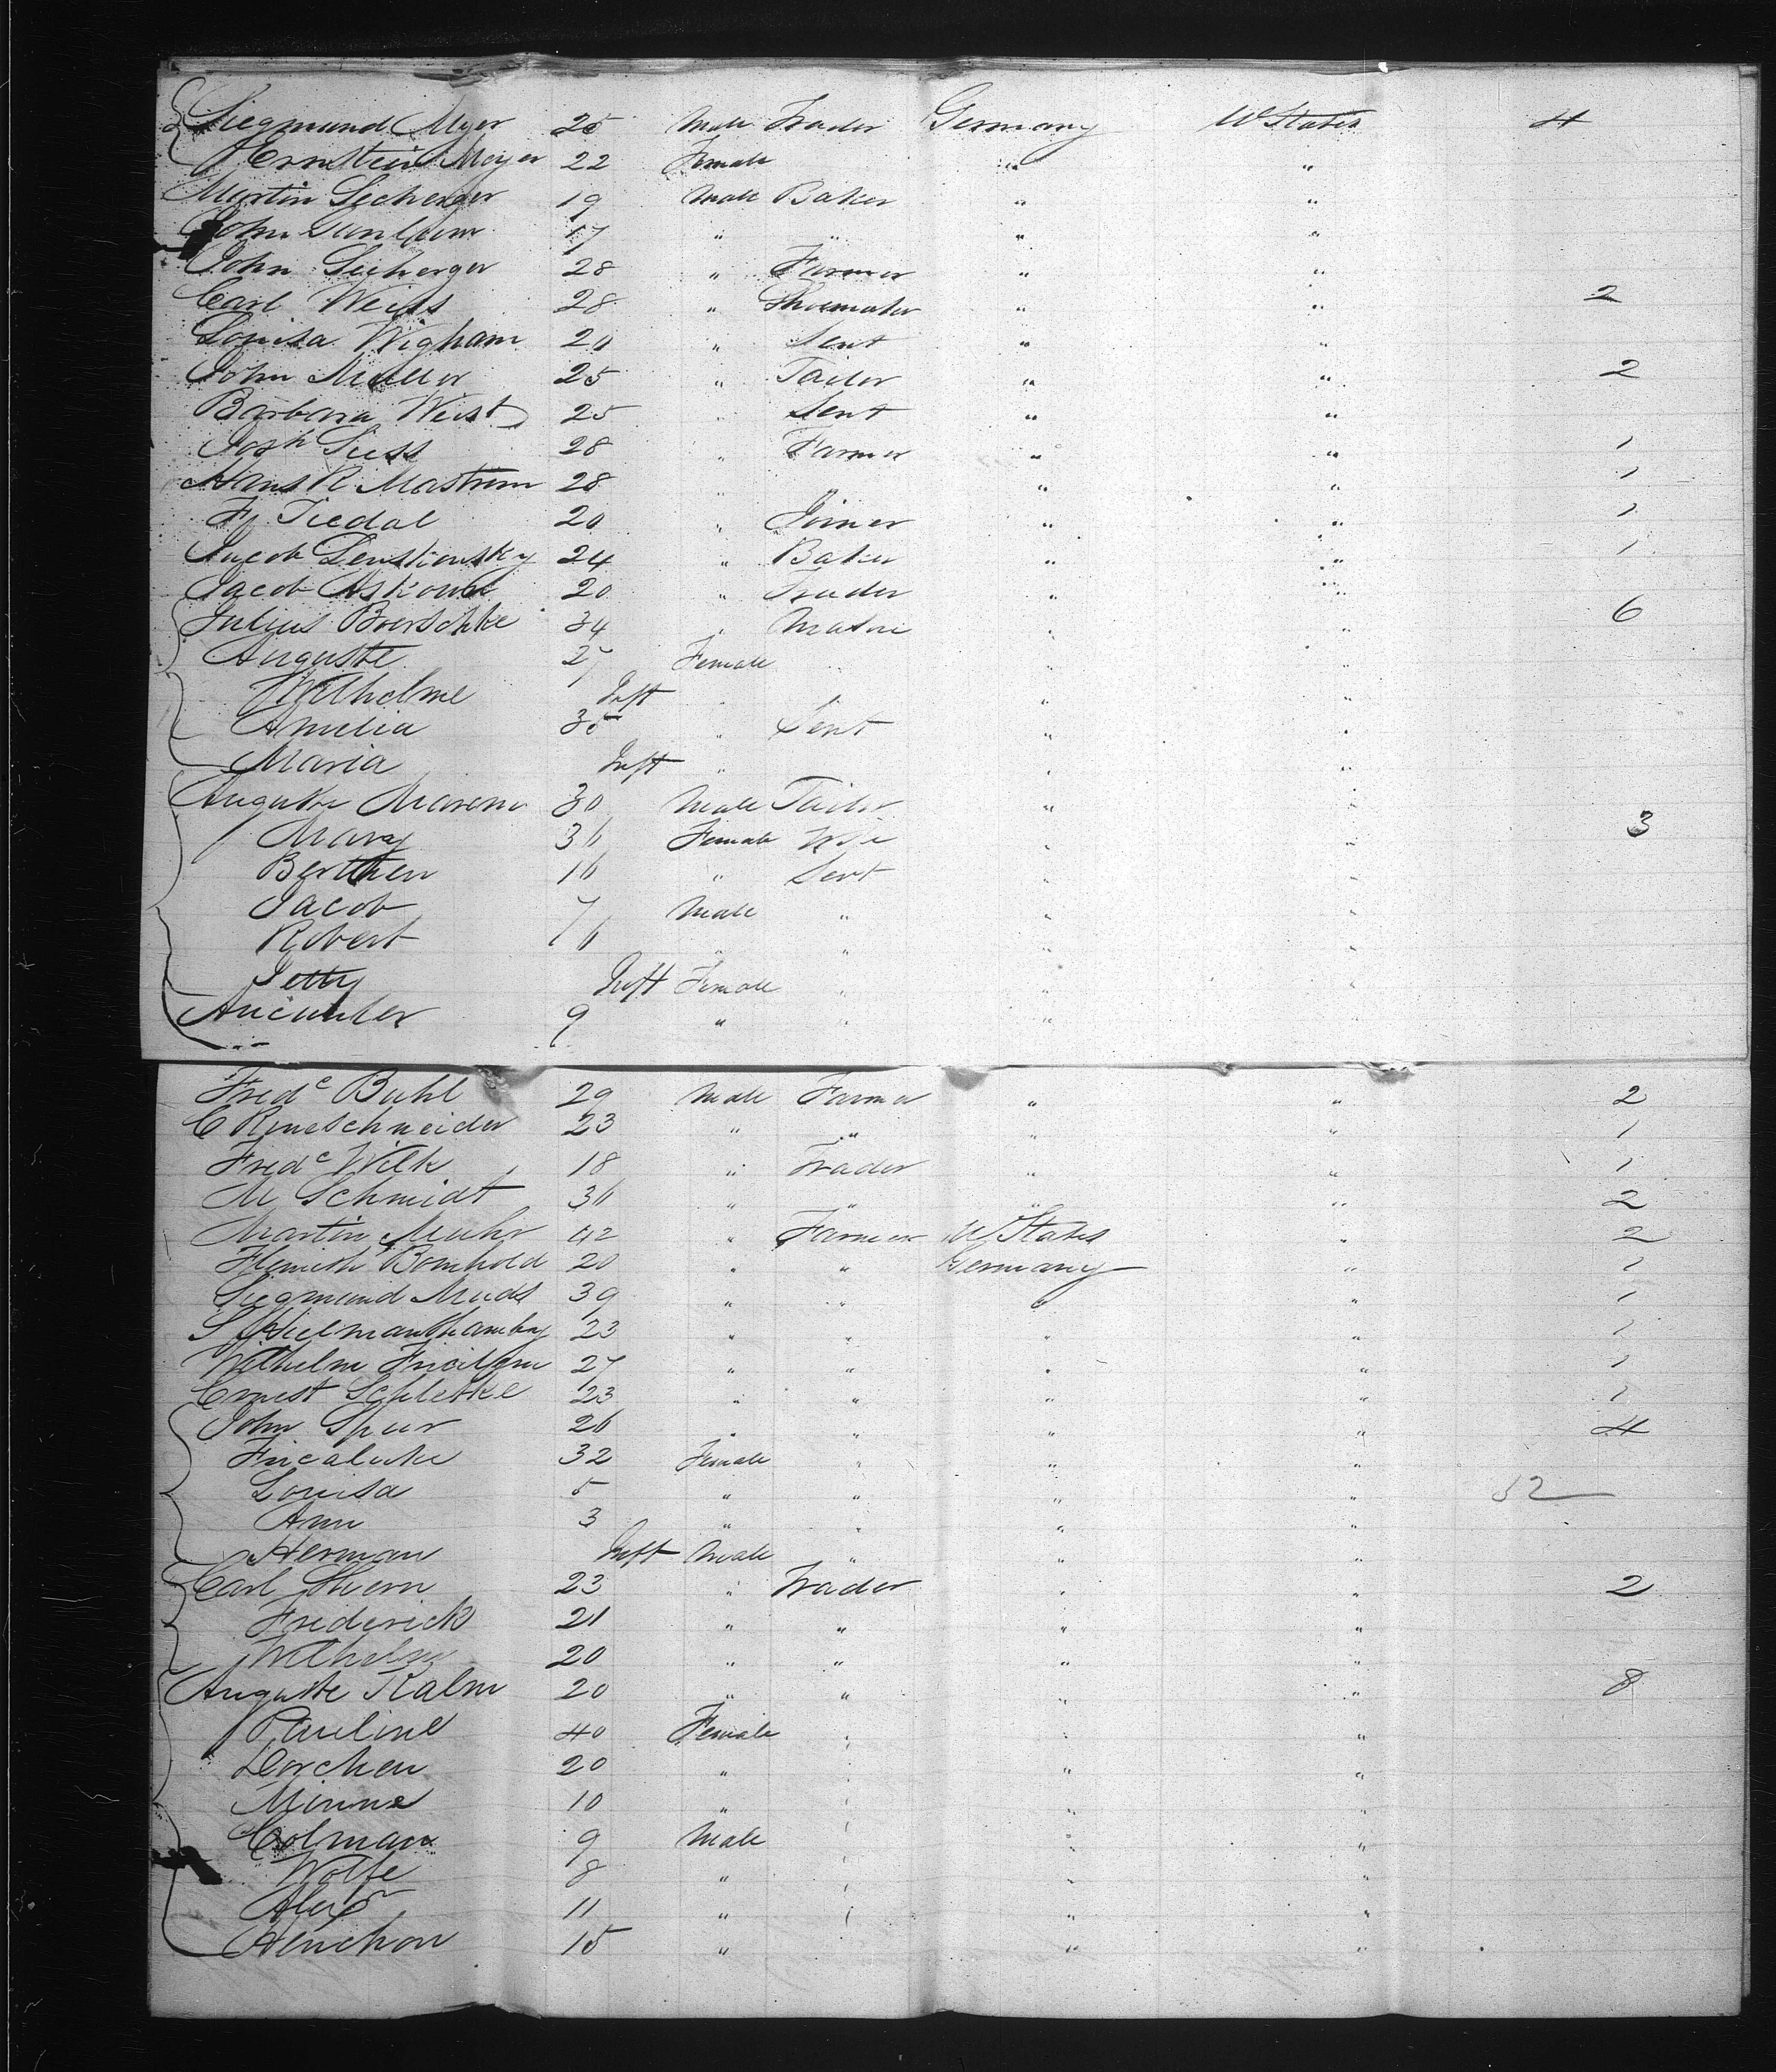 Siegmund Myer 25 Male Trader Germany U States 4
Ernstein Meyer 22 Female " "
Martin Secherger 19 Male Baker " "
John 17 " " " "
John Secherger 28 " Farmer " "
Carl Weiss 28 " Shoemaker " " 2
Louisa Wigham 20 " Servt " "
John Muller 25 " Tailor " " 2
Barbara Weist 25 " Servt " "
Josh Suss 28 " Farmer " " 1
Hans R Mastrum 28 " " " 1
Fr Tiedal 20 " Joiner " " 1
Jacob Lenskousky 24 " Baker " " 1
Jacob Askowd 20 " Trader " "
Julius Boerschke 34 " " " 6
Auguste 27 Female " " "
Wilhelme Inft " " "
Amelia 35 " Servt " "
Maria Inft " " "
Auguste 30 Male Tailor " "
Mary 36 Female Wife " " 3
Berthen 16 " Servt " "
Jacob 7 Male " " "
Robert 6 " " " "
Jetty Inft Female " " "
9 " " " "
Fredc Buhl 29 Male Farmer " " 2
C Rineschneider 23 " " " " 1
Fredc Wilk 18 " Trader " " 1
M Schmidt 36 " " " " 2
Martin Muhr 42 " Farmer U States " 2
Heinrich Bomhold 20 " " Germany " 1
Siegmund Muds 39 " " " " 1
S 23 " " " " 1
Wilhelm 27 " " " " 1
Ernest Schletke 23 " " " " 1
John Spur 26 " " " " 4
32 Female " " "
Louisa 5 " " " " 52
Ann 3 " " " "
Herman Inft Male " " "
Carl Stern 23 " Trader " " 2
Frederick 21 " " " "
Wilhelm 20 " " " "
Auguste Kalm 20 " " " " 8
Pauline 40 Female " " "
Dorchen 20 " " " "
Minna 10 " " " "
Colman 9 Male " " "
Wolfe 8 " " " "
Alexr 11 " " " "
Henchon 15 " " "